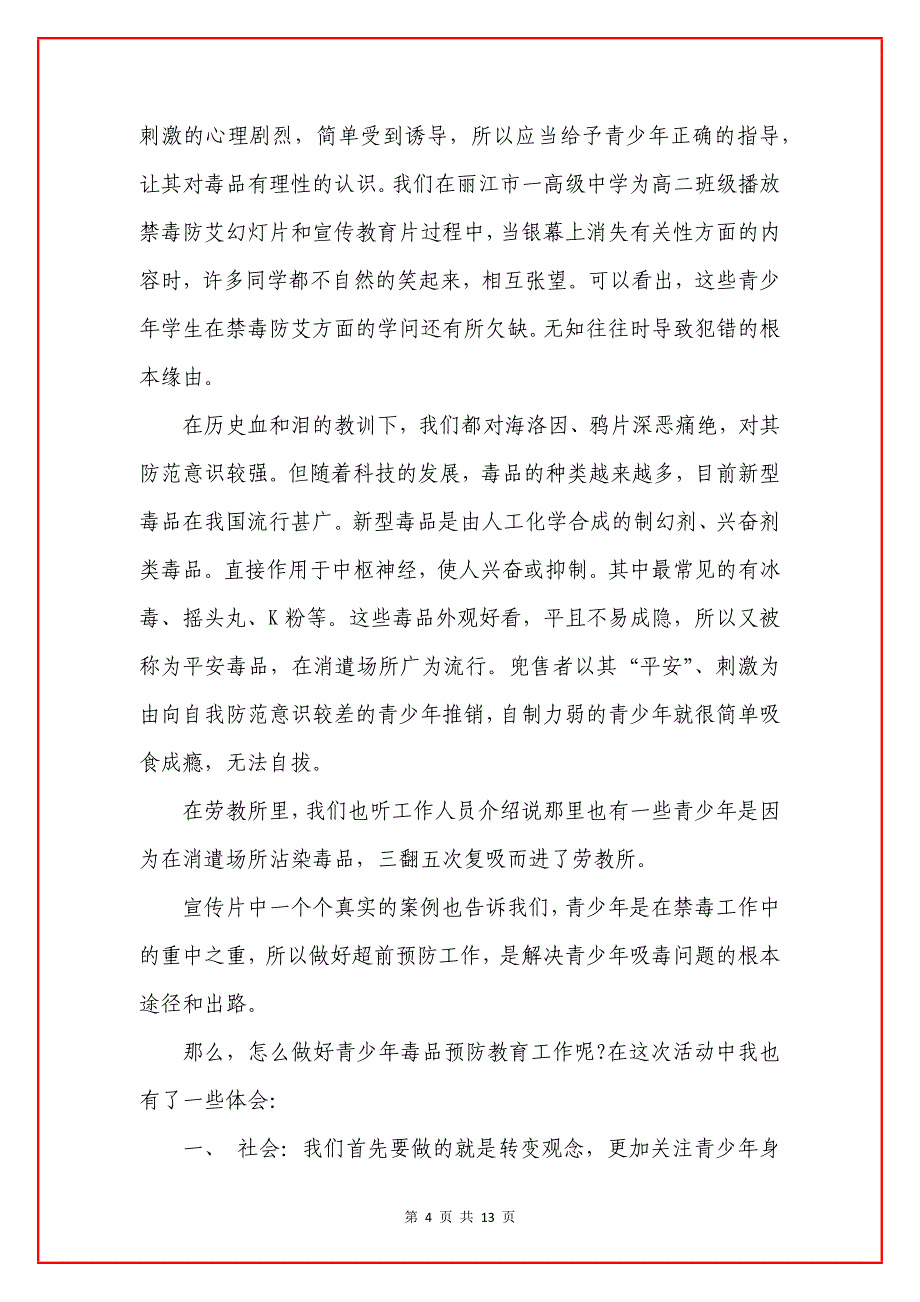 刺激的心理剧烈，简单受到诱导，所以应当给予青少年正确的指导，
让其对毒品有理性的认识。我们在丽江市一高级中学为高二班级播放
禁毒防艾幻灯片和宣传教育片过程中，当银幕上消失有关性方面的内
容时，许多同学都不自然的笑起来，相互张望。可以看出，这些青少
年学生在禁毒防艾方面的学问还有所欠缺。无知往往时导致犯错的根
本缘由。
在历史血和泪的教训下，我们都对海洛因、鸦片深恶痛绝，对其
防范意识较强。但随着科技的发展，毒品的种类越来越多，目前新型
毒品在我国流行甚广。新型毒品是由人工化学合成的制幻剂、兴奋剂
类毒品。直接作用于中枢神经，使人兴奋或抑制。其中最常见的有冰
毒、摇头丸、K 粉等。这些毒品外观好看，平且不易成隐，所以又被
称为平安毒品，在消遣场所广为流行。兜售者以其“平安”、刺激为
由向自我防范意识较差的青少年推销，自制力弱的青少年就很简单吸
食成瘾，无法自拔。
在劳教所里，我们也听工作人员介绍说那里也有一些青少年是因
为在消遣场所沾染毒品，三翻五次复吸而进了劳教所。
宣传片中一个个真实的案例也告诉我们，青少年是在禁毒工作中
的重中之重，所以做好超前预防工作，是解决青少年吸毒问题的根本
途径和出路。
那么，怎么做好青少年毒品预防教育工作呢?在这次活动中我也
有了一些体会：
一、 社会：我们首先要做的就是转变观念，更加关注青少年身
第 4 页 共 13 页